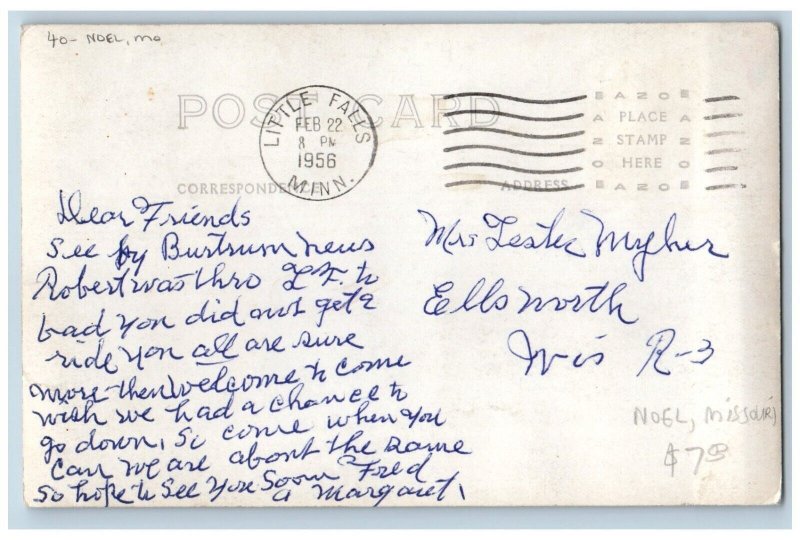 40- NOEL, Mo
POST CARD
LITTLE FALLS
FEB 22
8 PM
1956
MINN.
CORRESPONDENCE
ADDRESS
EAZOE
PLACE
STAMP
HERE
EAZOE
Dear Friends
See by Burtrum News
Robert was thro L.F. to
bad you did not get a
ride you all are sure
more then welcome to come
wish we had a chance to
go down, So come when you
Can we are about the same
So hope to See You Soon Fred
a Margaret
Mrs Lester
Ellsworth
Wis R-3
NOEL, MISSOURI
$7